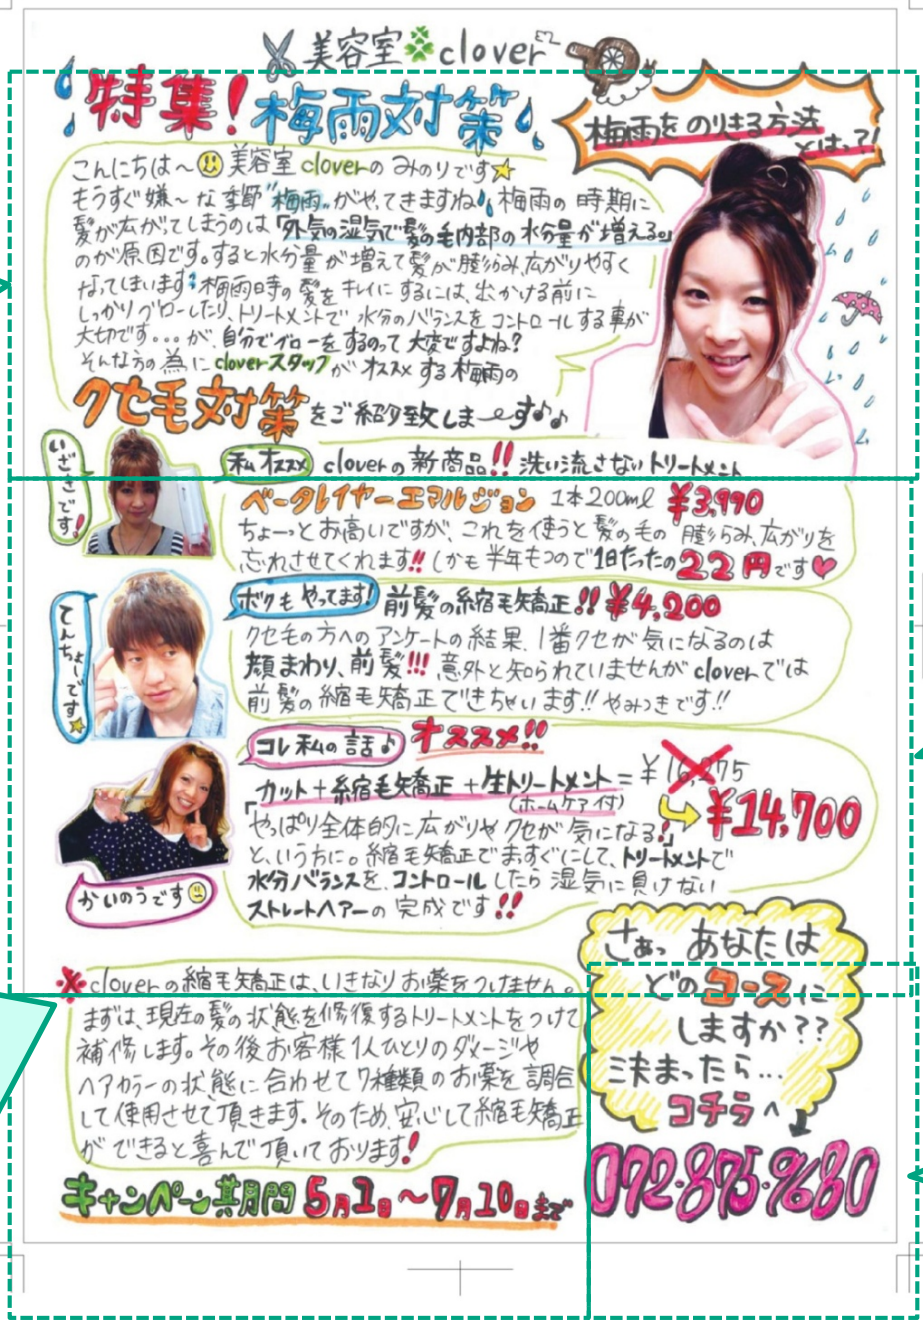 美容室 clover
特集!梅雨対策
梅雨をのりきる方法
とはって!
こんにちは〜 美容室cloverのみのりです☆
もうすぐ嫌〜な季節"梅雨"がやってきますね 梅雨の時期に
髪が広がってしまうのは「外気の湿気で髪の毛内部の水分量が増える。」
のが原因です。すると水分量が増えて髪が膨らみ、広がりやすく
なってしまいます 梅雨時の髪をキレイにするには、出かける前に
しっかりブローしたり、トリートメントで水分のバランスをコントロールする事が
大切です...が、自分でブローをするのって大変ですよね?
そんな方の為にcloverスタッフがオススメする梅雨の
クセ毛対策をご紹介致しま〜す♪♪
いざきです!
私オススメ cloverの新商品!!洗い流さないトリートメント
ベータレイヤーエマルジョン 1本200ml ¥3,990
ちょーっとお高いですが、これを使うと髪の毛の膨らみ、広がりを
忘れさせてくれます!!しかも半年もつので1日たったの22円です♥
てんちょーです☆
ボクもやってます! 前髪の縮毛矯正!!¥4,200
クセ毛の方へのアンケートの結果、1番クセが気になるのは
顔まわり、前髪!!!意外と知られていませんがcloverでは
前髪の縮毛矯正できちゃいます!!やみつきです!!
かいのうです
コレ私の話♪ オススメ!!
カット+縮毛矯正+生トリートメント=¥16,275
(ホームケア付)
¥14,700
「やっぱり全体的に広がりやクセが気になる!」
と、いう方に。縮毛矯正でまっすぐにして、トリートメントで
水分バランスを、コントロールしたら湿気に負けない
ストレートヘアーの完成です!!
※cloverの縮毛矯正は、いきなりお薬をつけません。
まずは、現在の髪の状態を修復するトリートメントをつけて
補修します。その後お客様1人ひとりのダメージや
ヘアカラーの状態に合わせて7種類のお薬を調合
して使用させて頂きます。そのため、安心して縮毛矯正
ができると喜んで頂いております!
キャンペーン期間5月1日〜7月10日まで
さぁっ あなたは
どのコースに
しますか??
決まったら...
コチラへ
072-875-9680